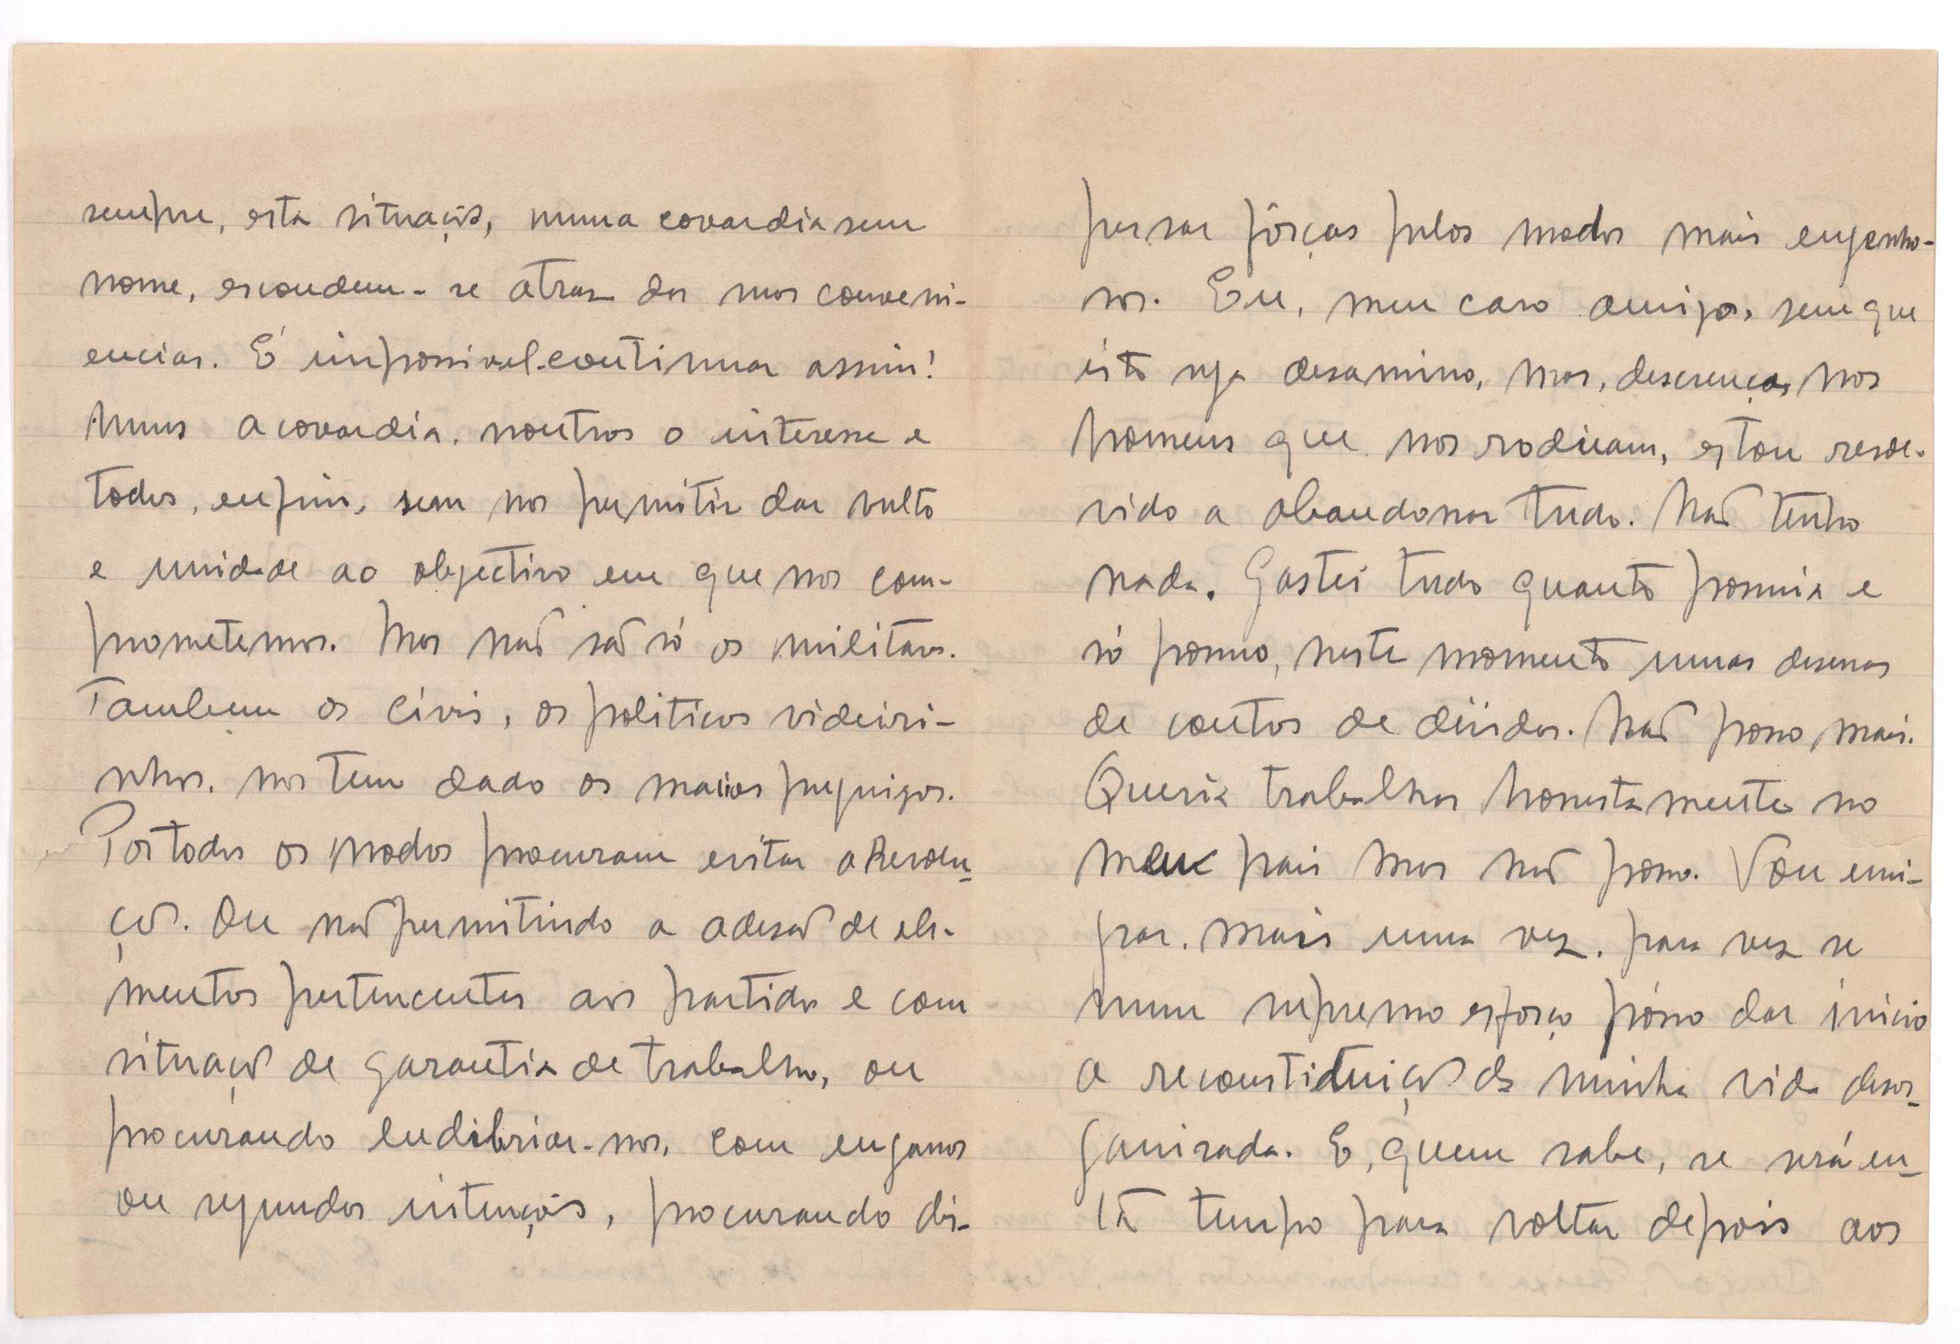 sempre, esta situação, numa covardia sem
nome, escondem-se atraz das mas conveni-
encias. É impossivel continuar assim!
Nuns a covardia, noutros o interesse e
todos, enfim, sem nos permitir dar vulto
e unidade ao objectivo em que nos com-
prometemos. Mas não são só os militares.
Tambem os civis, os politicos videiri-
nhos, nos tem dado os maiores prejuizos.
Por todos os modos procuram evitar a Revolu-
ção. Ou não permitindo a adesão de ele-
mentos pertencentes aos partidos e com
situação de garantia de trabalho, ou
procurando ludibriar-nos, com enganos
ou segundas intenções, procurando dis-
persar fôrças pelos modos mais engenho-
sos. Eu, meu caro amigo, sem que
isto seja desanimo, mas, descrença, nos
homens que nos rodeiam, estou resol-
vido a abandonar tudo. Não tenho
nada. Gastei tudo quanto possuia e
só possuo, neste momento umas desenas
de contos de dividas. Não posso mais.
Queria trabalhar honestamente no
meu pais mas não posso. Vou emi-
grar, mais uma vez, para ver se
num supremo esforço pósso dar inicio
a reconstituição da minha vida desor-
ganisada. E, quem sabe, se será en-
tão tempo para voltar depois aos